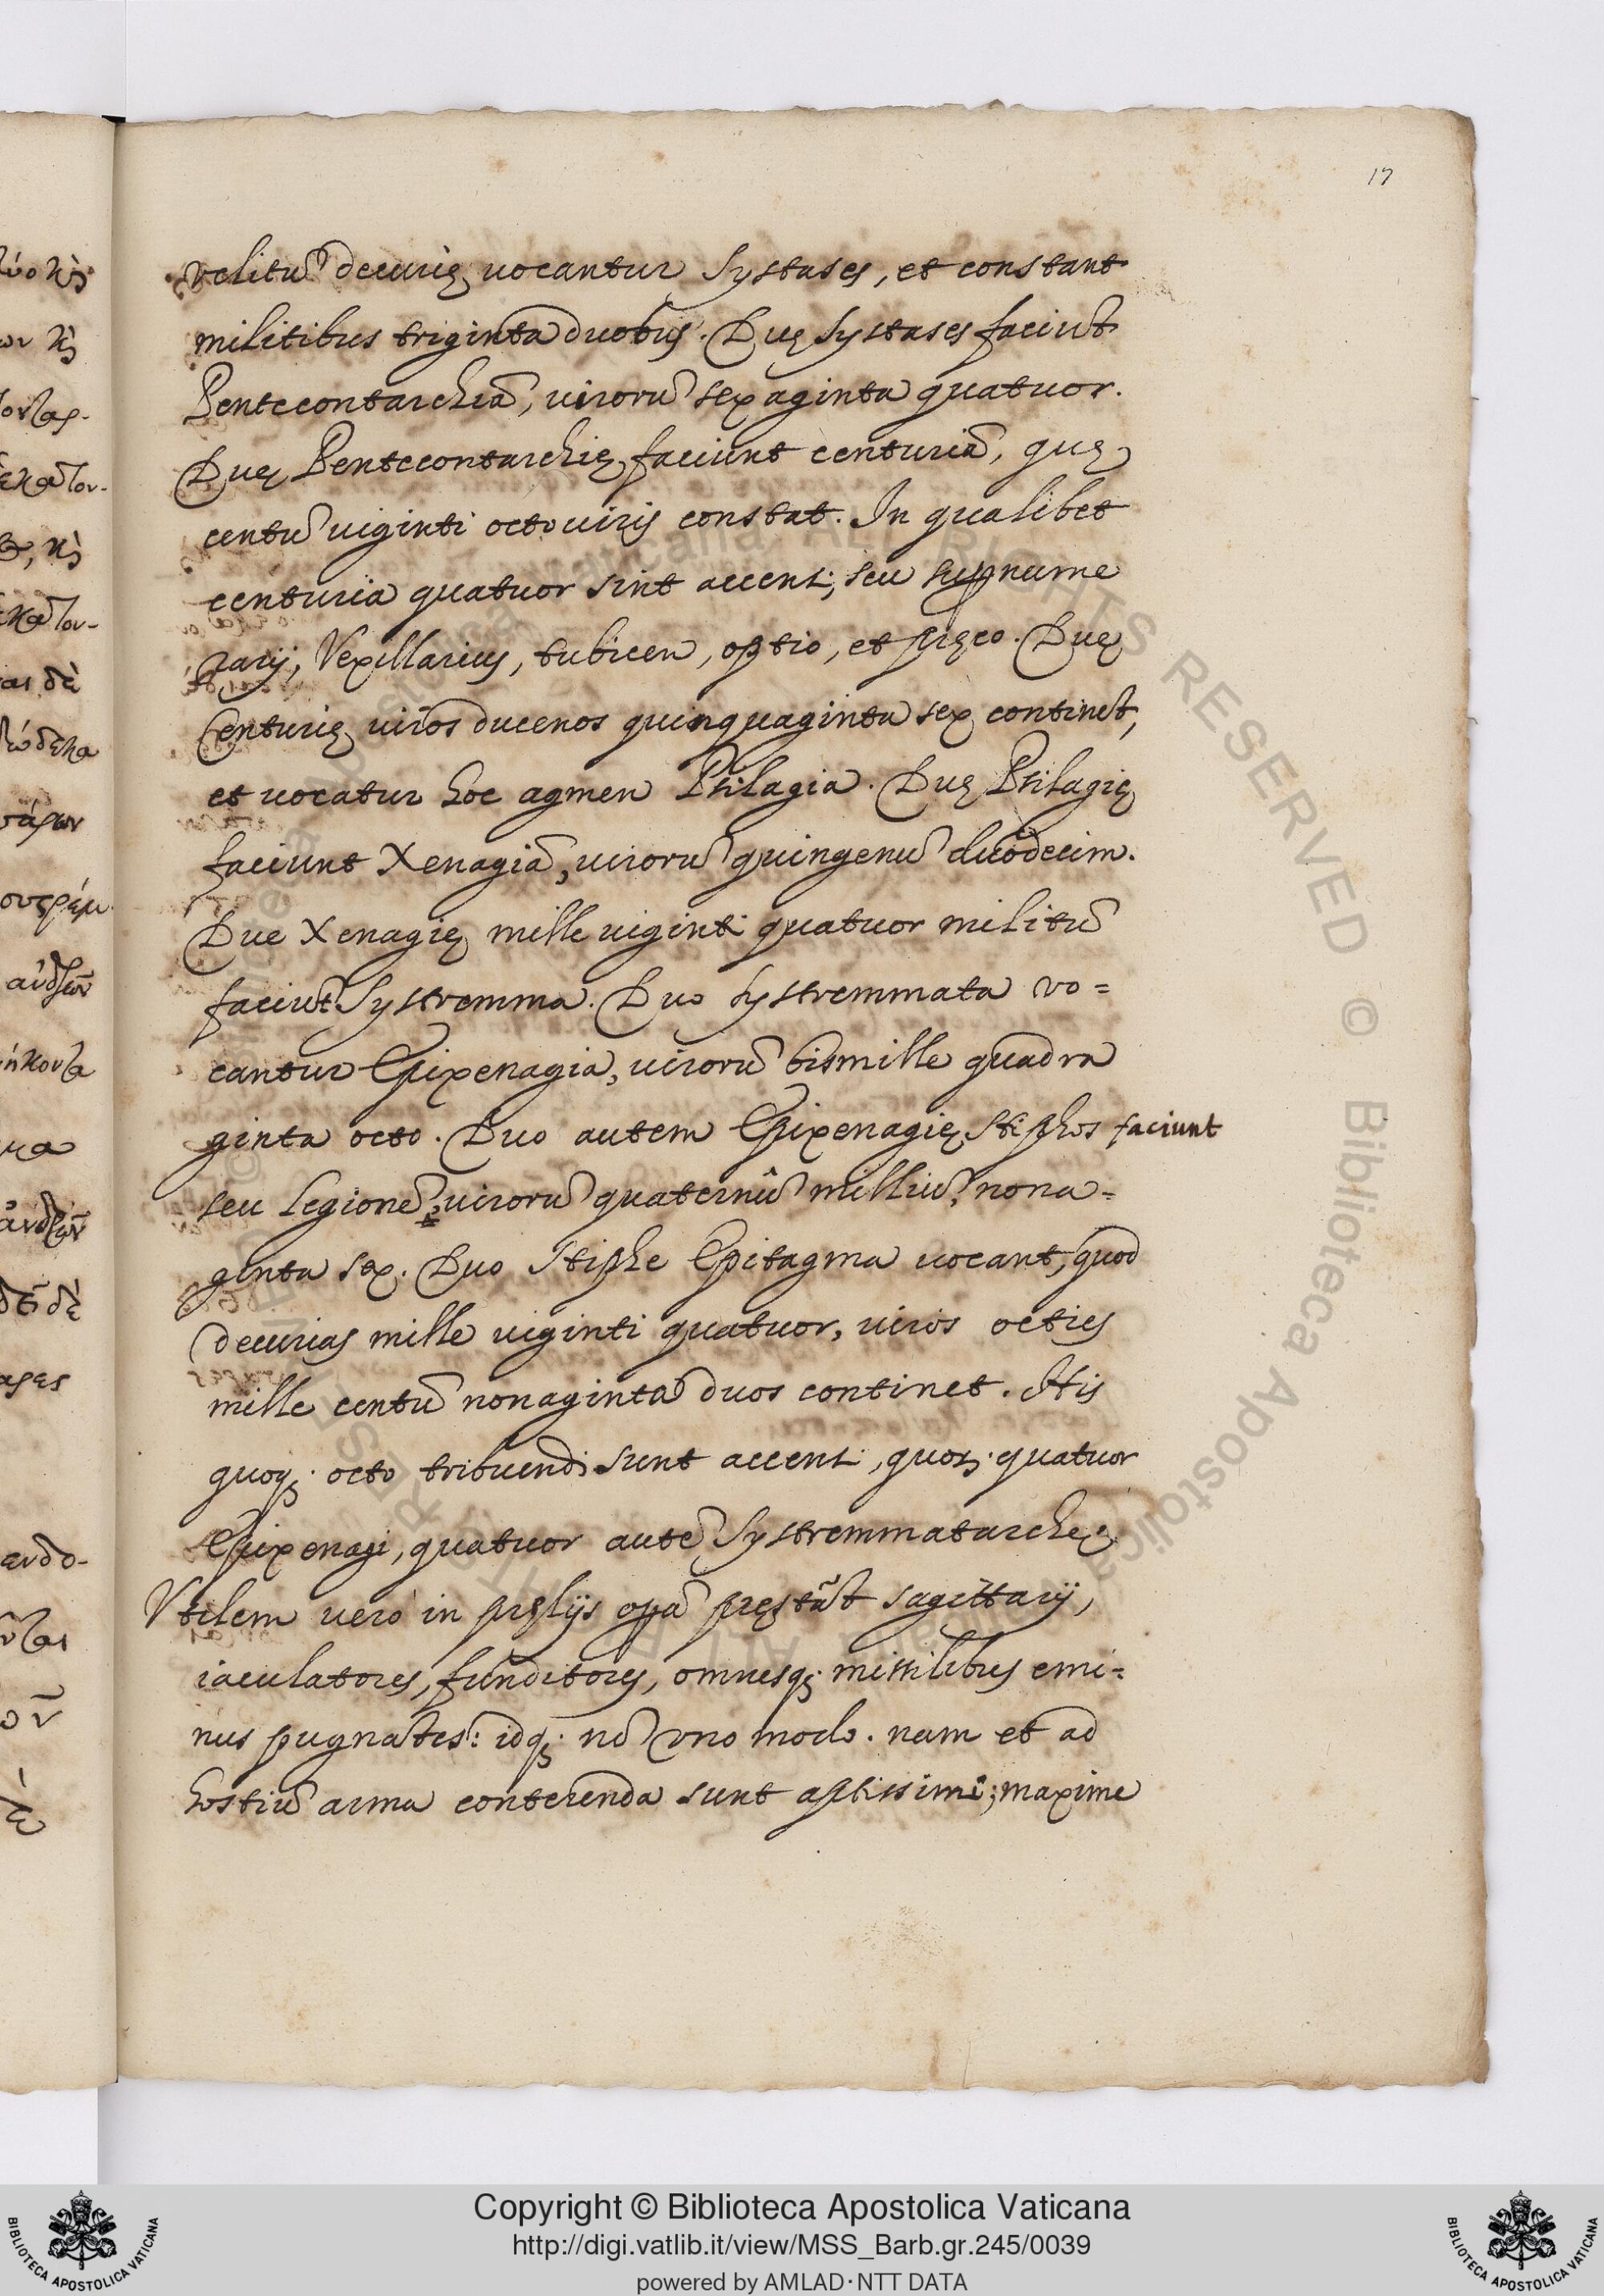 17
velitũ decurię uocantur Systases, et constant
militibus triginta duobus. Duę systases faciũt
Pentecontarchiã, uirorũ sexaginta quatuor.
Duę Pentecontarchię faciunt centuriã, quę
centũ uiginti octo uiris constat. In qualibet
centuria quatuor sint accensi, seu supnume
rarij, Vexillarius, tubicen, optio, et pręco. Duę
Centurię uiros ducenos quinquaginta sex continẽt,
et uocatur hoc agmen Psilagia. Duę Psilagię
faciunt Xenagiã, uirorũ quingenũ duodecim.
Due Xenagię mille uiginti quatuor militũ
faciũt Systremma. Duo systremmata vo=
cantur Epixenagia, uirorũ bismille quadra
ginta octo. Duo autem Epixenagię Stiphos faciunt
seu legionẽ, uirorũ quaternũ milliũ, nona=
ginta sex. Duo Stiphe Epitagma uocant, quod
decurias mille uiginti quatuor, uiros octies
mille centũ nonaginta duos continet. His
quoq; octo tribuendi sunt accensi, quatuor
Epixenagi, quatuor autẽ Systremmatarchę.
Vtilem verò in pręlijs opã pręstãt sagittarij,
iaculatores, funditores, omnesq; missilibus emi=
nus pugnãtes: idq; nõ vno modo. nam et ad
hostiũ arma conterenda sunt aptissimi; maxime
ουςρέμ
ἀνδρῶν
ήκοντα
μα
ἀνδρῶν
ανδο-
Copyright © Biblioteca Apostolica Vaticana
http://digi.vatlib.it/view/MSS_Barb.gr.245/0039
powered by AMLAD·NTT DATA
BIBLIOTECA APOSTOLICA VATICANA
BIBLIOTECA APOSTOLICA VATICANA